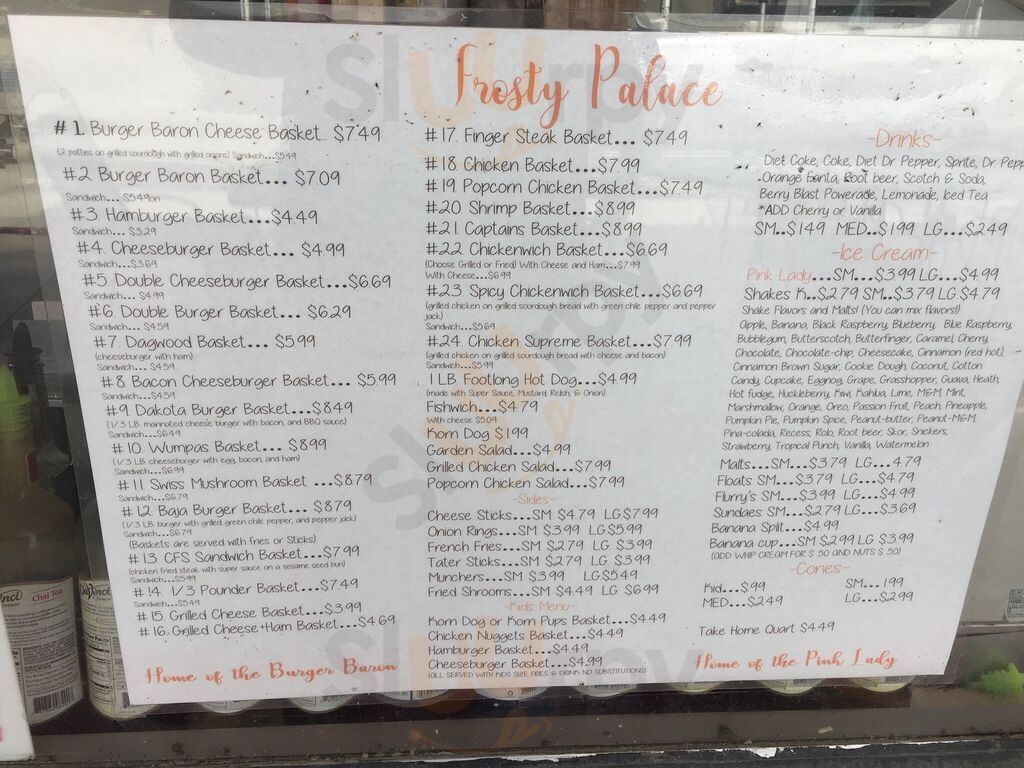 Frosty Palace
# 1. Burger Baron Cheese Basket... $7.49
(2 patties on grilled sourdough with grilled onions) Sandwich...$5.49
#2. Burger Baron Basket... $7.09
Sandwich...
#3. Hamburger Basket...$4.49
Sandwich... $3.29
#4. Cheeseburger Basket... $4.99
Sandwich...$3.69
#5. Double Cheeseburger Basket...$6.69
Sandwich... $4.99
#6. Double Burger Basket... $6.29
Sandwich... $4.59
#7. Dagwood Basket... $5.99
(cheeseburger with ham)
Sandwich... $4.59
#8. Bacon Cheeseburger Basket... $5.99
Sandwich...$4.59
#9. Dakota Burger Basket... $8.49
(1/3 LB. marinated cheese burger with bacon, and BBQ sauce)
Sandwich...$6.49
#10. Wumpas Basket... $8.99
(1/3 LB. cheeseburger with egg, bacon, and ham)
Sandwich...$6.99
#11. Swiss Mushroom Basket ...$8.79
Sandwich...$6.79
#12. Baja Burger Basket... $8.79
(1/3 LB burger with grilled green chile pepper, and pepper jack)
Sandwich...$6.79
(Baskets are served with fries or Sticks)
#13. CFS Sandwich Basket... $7.99
(chicken fried steak with super sauce on a sesame seed bun)
Sandwich...$5.99
#14. 1/3 Pounder Basket... $7.49
Sandwich...$5.49
#15. Grilled Cheese Basket...$3.99
#16. Grilled Cheese+Ham Basket...$4.69
Home of the Burger Baron
#17. Finger Steak Basket... $7.49
#18. Chicken Basket... $7.99
#19. Popcorn Chicken Basket...$7.49
#20. Shrimp Basket... $8.99
#21. Captains Basket...$8.99
#22. Chickenwich Basket...$6.69
(Choose Grilled or Fried) With Cheese and Ham...$7.99
With Cheese...$6.99
#23. Spicy Chickenwich Basket...$6.69
(grilled chicken on grilled sourdough bread with green chile pepper and pepper
jack)
Sandwich...$5.69
#24. Chicken Supreme Basket...$7.99
(grilled chicken on grilled sourdough bread with cheese and bacon)
Sandwich...$5.99
1 LB. Footlong Hot Dog...$4.99
(made with Super Sauce, Mustard, Relish, & Onion)
Fishwich...$4.79
With cheese $5.09
Korn Dog $1.99
Garden Salad...$4.99
Grilled Chicken Salad...$7.99
Popcorn Chicken Salad...$7.99
-Sides-
Cheese Sticks...SM $4.79 LG $7.99
Onion Rings...SM $3.99 LG $5.99
French Fries...SM $2.79 LG $3.99
Tater Sticks...SM $2.79 LG $3.99
Munchers...SM $3.99 LG $5.49
Fried Shrooms...SM $4.49 LG $6.99
-Kids Menu-
Korn Dog or Korn Pups Basket...$4.49
Chicken Nuggets Basket...$4.49
Hamburger Basket...$4.49
Cheeseburger Basket...$4.99
(ALL SERVED WITH KIDS SIZE FRIES & DRINK NO SUBSTITUTIONS)
-Drinks-
Diet Coke, Coke, Diet Dr Pepper, Sprite, Dr Pepp
Orange Fanta, Root beer, Scotch & Soda,
Berry Blast Powerade, Lemonade, Iced Tea
*ADD Cherry or Vanilla
SM..$1.49 MED..$1.99 LG...$2.49
-Ice Cream-
Pink Lady...SM...$3.99 LG...$4.99
Shakes K..$2.79 SM..$3.79 LG.$4.79
Shake Flavors and Malts! (You can mix flavors!)
Apple, Banana, Black Raspberry, Blueberry, Blue Raspberry,
Bubblegum, Butterscotch, Butterfinger, Caramel, Cherry,
Chocolate, Chocolate-chip, Cheesecake, Cinnamon (red hot),
Cinnamon Brown Sugar, Cookie Dough, Coconut, Cotton
Candy, Cupcake, Eggnog, Grape, Grasshopper, Guava, Heath,
Hot fudge, Huckleberry, Kiwi, Kahlua, Lime, M&M, Mint,
Marshmallow, Orange, Oreo, Passion Fruit, Peach, Pineapple,
Pumpkin Pie, Pumpkin Spice, Peanut-butter, Peanut-M&M,
Pina-colada, Recess, Rolo, Root beer, Skor, Snickers,
Strawberry, Tropical Punch, Vanilla, Watermelon
Malts...SM...$3.79 LG...4.79
Floats SM...$3.79 LG...$4.79
Flurry's SM...$3.99 LG...$4.99
Sundaes SM...$2.79 LG...$3.69
Banana Split...$4.99
Banana cup...SM $2.99 LG $3.99
(ADD WHIP CREAM FOR $ .50 AND NUTS $ .50)
-Cones-
Kid...$.99 SM... 1.99
MED...$2.49 LG...$2.99
Take Home Quart $4.49
Home of the Pink Lady
Chai Tea